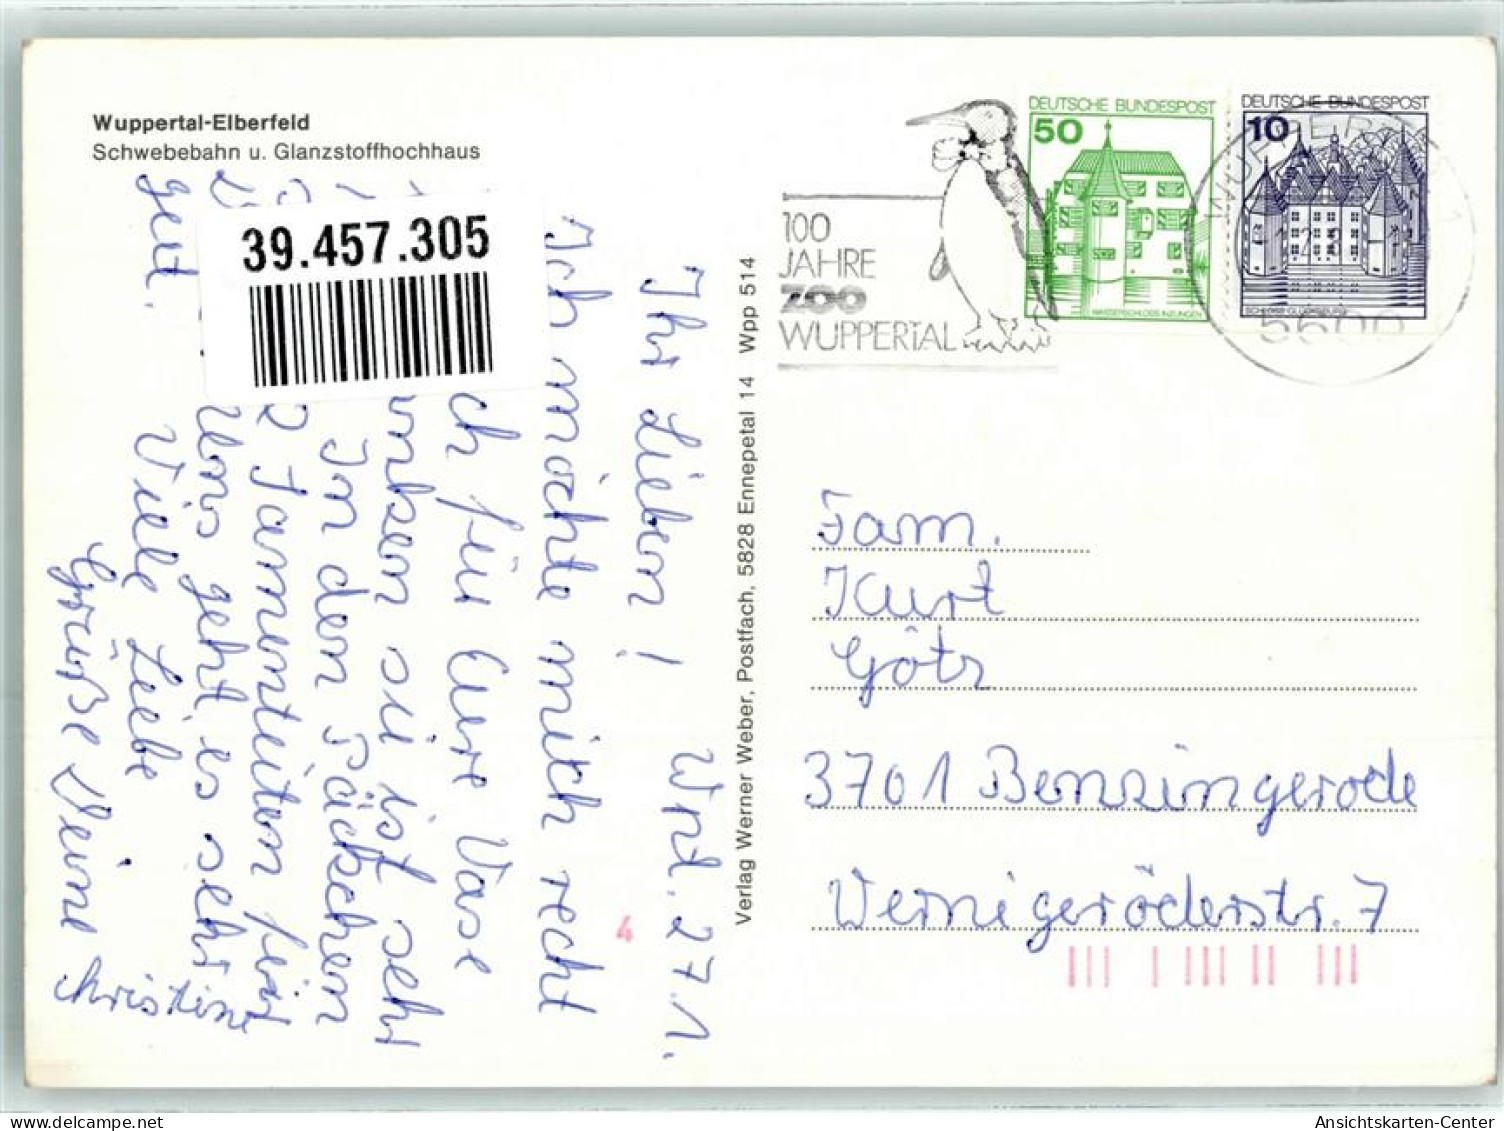 Wuppertal-Elberfeld
Schwebebahn u. Glanzstoffhochhaus
39.457.305
Wpt. 27.1.
Ihr Lieben!
Ich möchte mich recht
ch für Eure Vase
sie ist sehr
In den Päckchen
Uns geht es sehr
gut.
Viele Liebe
Grüße Deine
Christine
Verlag Werner Weber, Postfach, 5828 Ennepetal 14 Wpp 514
100
JAHRE
ZOO
WUPPERTAL
DEUTSCHE BUNDESPOST
50
WASSERSCHLOSS INZLINGEN
DEUTSCHE BUNDESPOST
10
SCHLOSS GLÜCKSBURG
WUPPERTAL 1
5600
Fam.
Kurt
Götz
3701 Benzingerode
Wernigeröderstr. 7
4
Ansichtskarten-Center